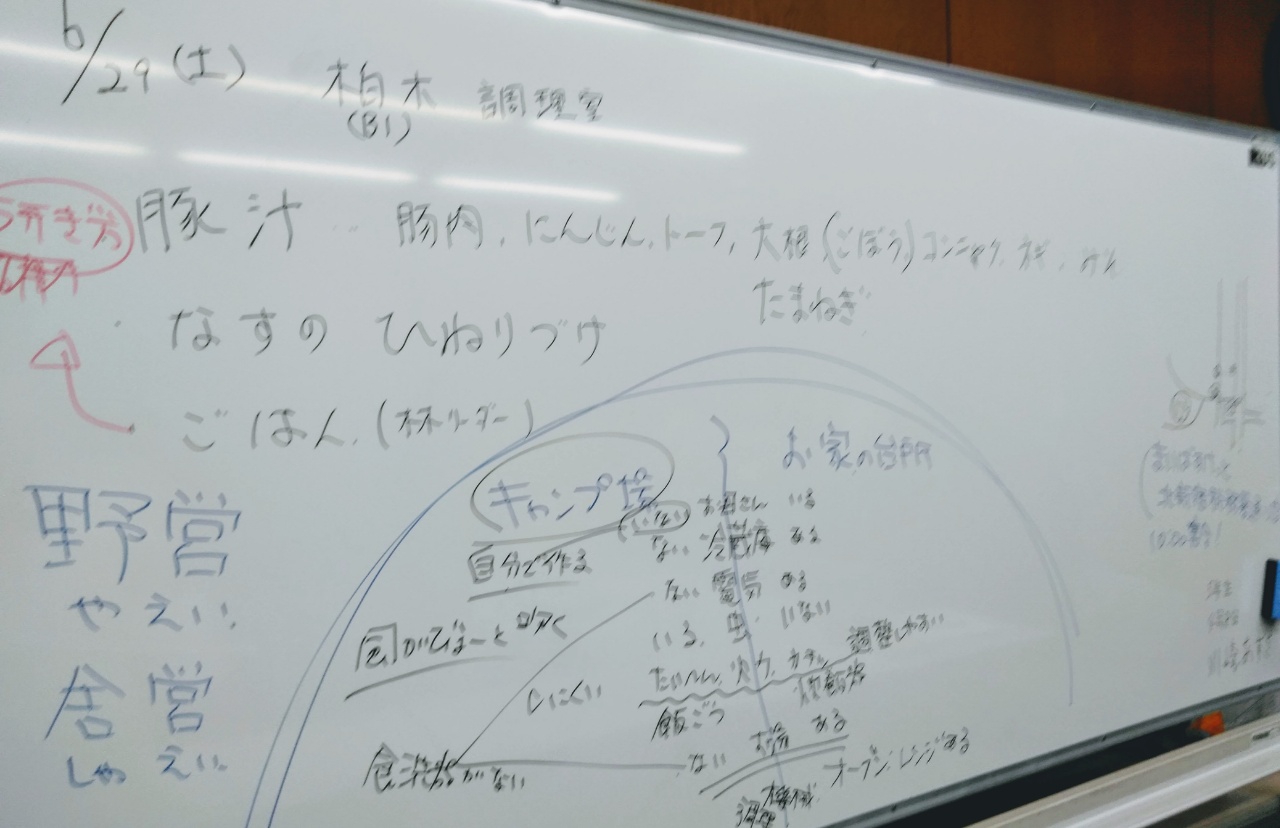 6/29(土) 柏木 調理室
(B1)
豚汁 … 豚肉、にんじん、トーフ、大根(ごぼう)コンニャク、ネギ、みそ
たまねぎ
なすの ひねりづけ
ごはん、(林リーダー)
野営
やえい
舎営
しゃえい
キャンプ場
お家の台所
いない お母さん いる
自分で作る
ない 冷蔵庫 ある
ない 電気 ある
いる 虫 いない
風がびゅーと吹く
たいへん 火力 カチッ 調整しやすい
しにくい
飯ごう 炊飯器
食洗機がない
ない お湯 ある
オーブン・レンジある
機械
10:00集合!